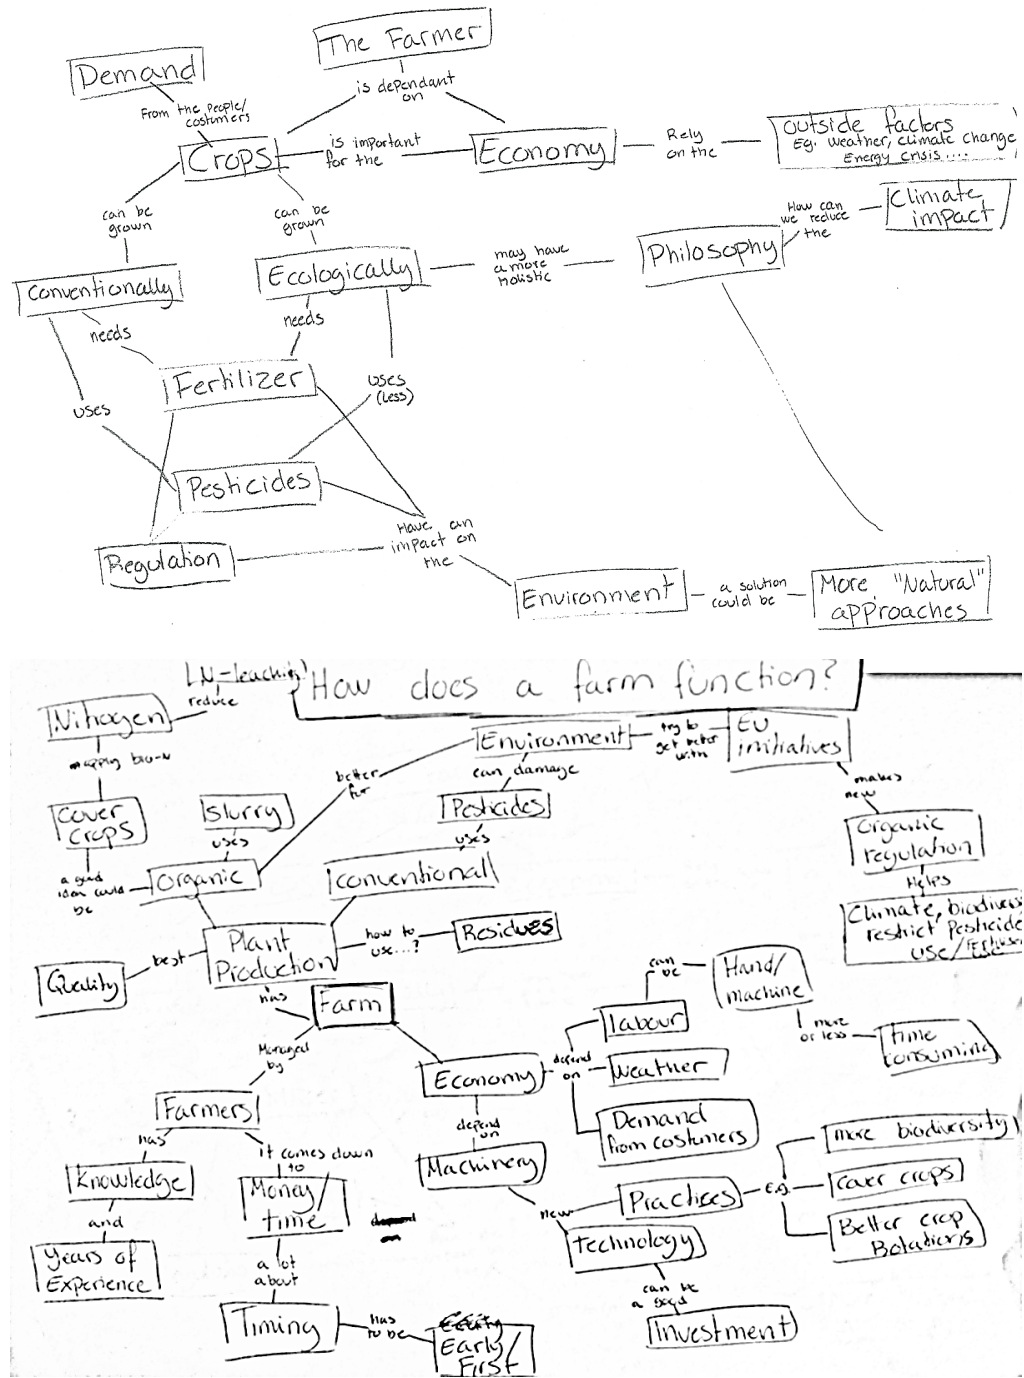 The Farmer
Demand
is dependant
on
From the people/
costumers
Crops
is important
for the
Economy
Rely
on the
outside factors
Eg. weather, climate change
Energy crisis.....
How can
we reduce
the
Climate
impact
can be
grown
can be
grown
Conventionally
Ecologically
may have
a more
holistic
Philosophy
needs
needs
Fertilizer
uses
uses
(less)
Pesticides
Regulation
Have an
impact on
the
Environment
a solution
could be
More "Natural"
approaches
How does a farm function?
N-leaching!
reduce
Nitrogen
mapping bio-N
cover
crops
a good
idea could
be
Slurry
uses
Organic
better
for
Environment
try to
get better
with
EU
initiatives
can damage
Pesticides
uses
conventional
makes
new
organic
regulation
Helps
Climate, biodivers
restrict Pesticide
use/
Plant
Production
how to
use...?
Residues
best
Quality
has
Farm
Managed
by
Economy
depend
on
labour
can
be
Hand/
machine
more
or less
time
consuming
weather
Demand
from costumers
Farmers
has
Knowledge
and
Years of
Experience
it comes down
to
Money/
time
a lot
about
Timing
has
to be
Early/
First
depend
on
Machinery
new
Practices
e.g.
more biodiversity
cover crops
Better crop
technology
can be
a good
Investment